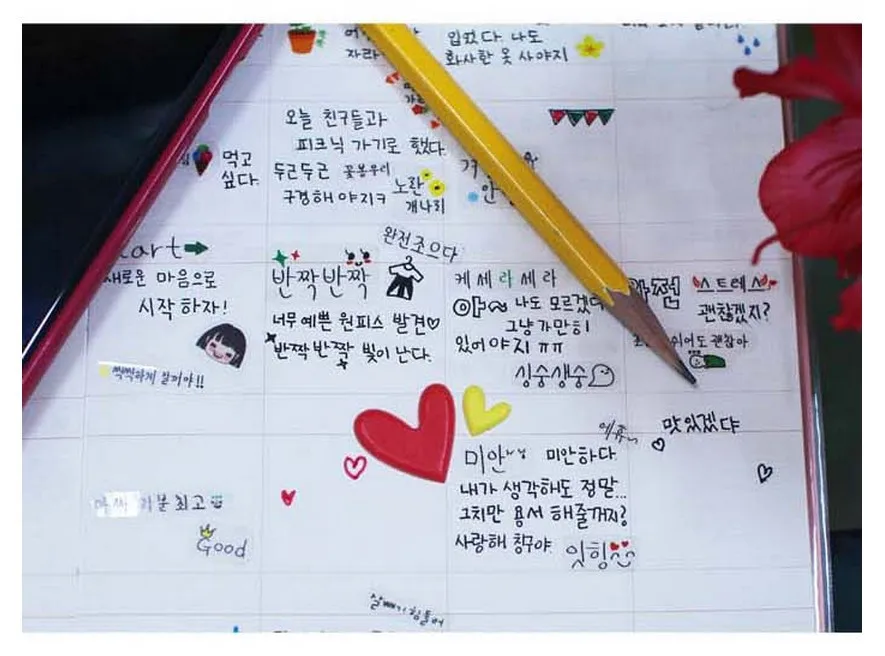 입었다. 나도
화사한 옷 사야지
자라
오늘 친구들과
피크닉 가기로 했다.
두근두근 꽃봉우리
구경해야지ㅋ
노란
개나리
먹고
싶다.
완전조으다
art
새로운 마음으로
시작하자!
씩씩하게 살꺼야!!
반짝반짝
너무 예쁜 원피스 발견♡
반짝반짝 빛이 난다.
케세라세라
아~ 나도 모르겠다
그냥 가만히
있어야지 ㅠㅠ
싱숭생숭
완전 스트레스
괜찮겠지?
쉬어도 괜찮아
맛있겠댜
미안 미안하다
내가 생각해도 정말...
그치만 용서 해줄꺼지?
사랑해 칭구야.
잇힝
기분 최고
Good
힘들어